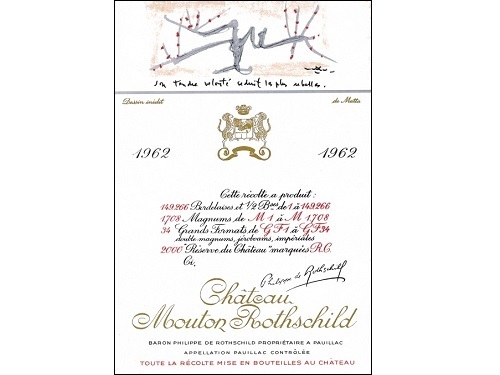 son tendre velouté séduit les plus rebelles.
Dessin inédit de Matta
1962 1962
Cette récolte a produit :
149.266 Bordelaises et 1/2 Bses de 1 à 149.266
1708 Magnums de M 1 à M 1708
34 Grands Formats de G F 1 à G F 34
double magnums, jéroboams, impériales
2000 "Réserve du Château" marquées R.C.
Ci,
Philippe de Rothschild
Château
Mouton Rothschild
BARON PHILIPPE DE ROTHSCHILD PROPRIÉTAIRE A PAUILLAC
APPELLATION PAUILLAC CONTRÔLÉE
TOUTE LA RÉCOLTE MISE EN BOUTEILLES AU CHÂTEAU